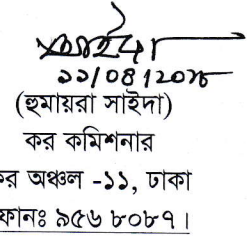 সাইদা
১১/০৪/২০১৮
(হুমায়রা সাইদা)
কর কমিশনার
কর অঞ্চল -১১, ঢাকা
ফোনঃ ৯৫৬ ৮০৮৭।